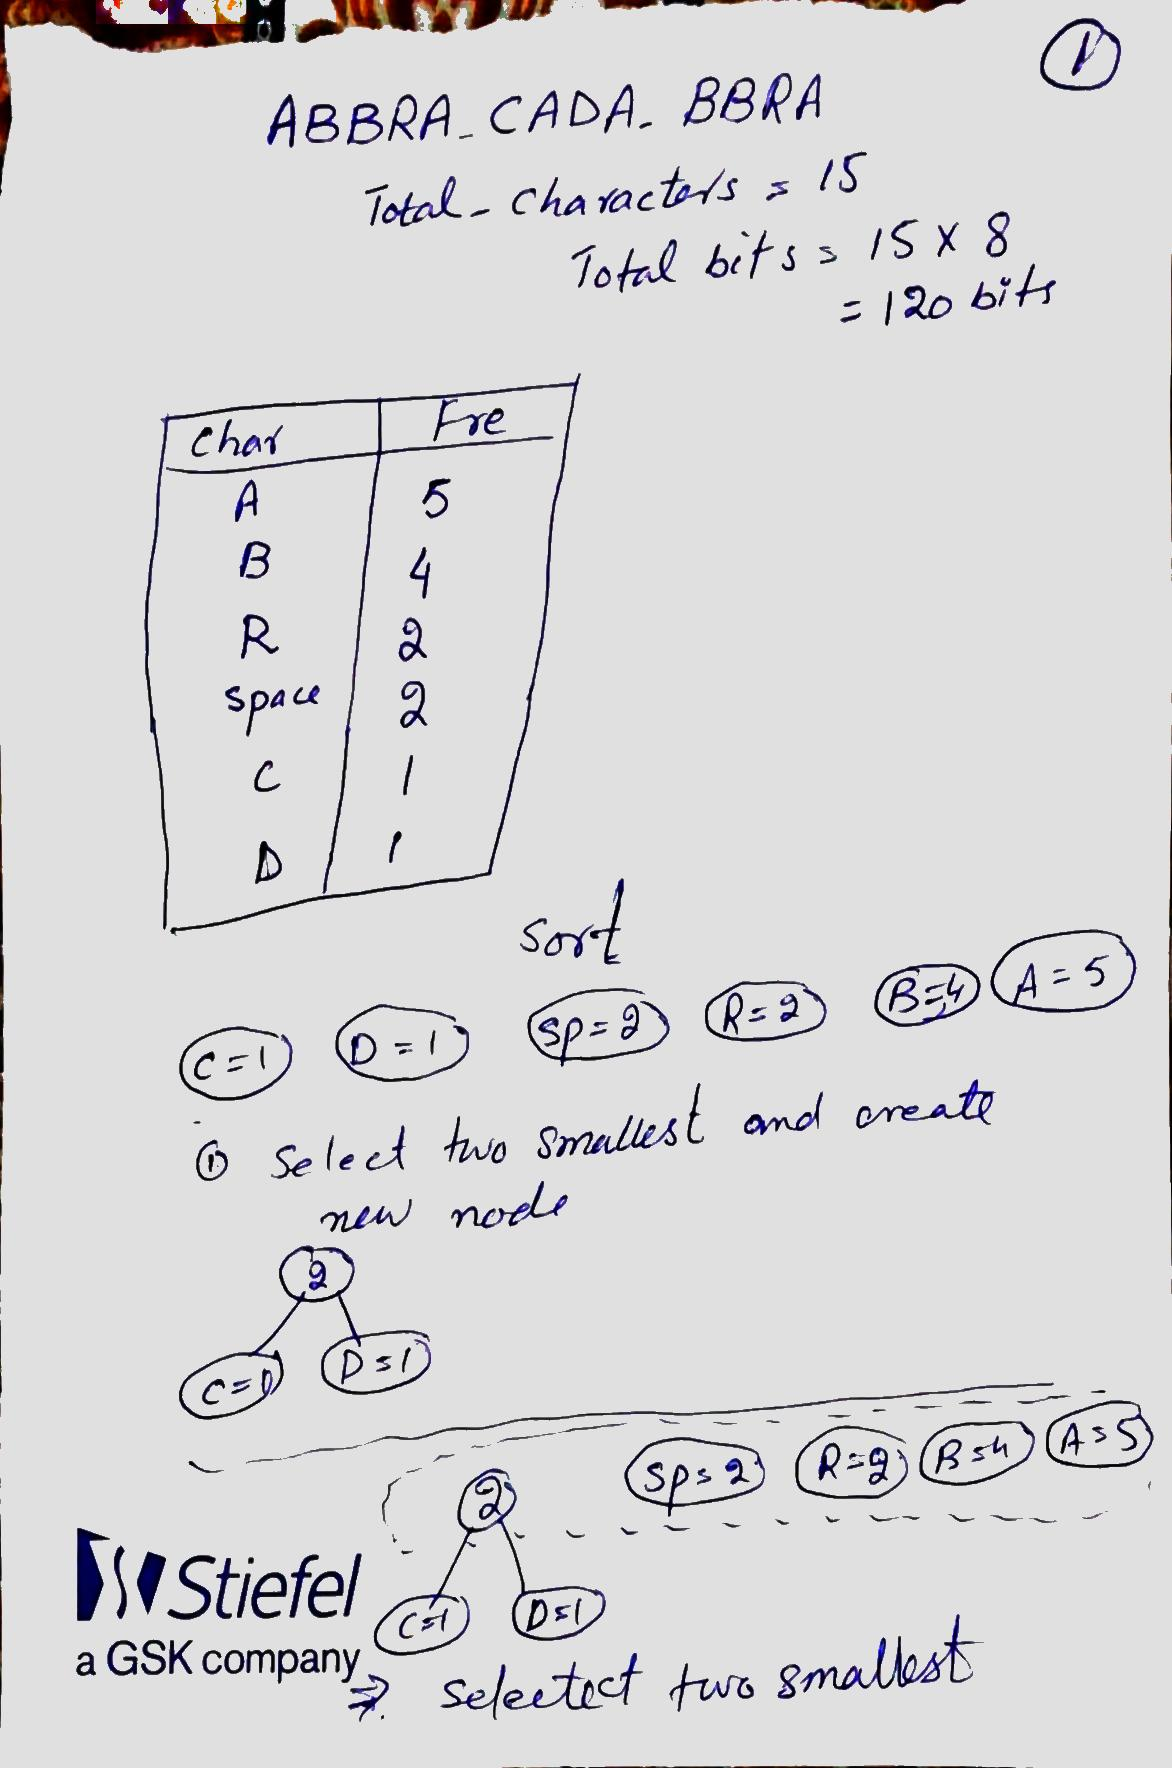 1
ABBRA_CADA_BBRA
Total_Characters = 15
Total bits = 15 X 8
= 120 bits
Char Fre
A 5
B 4
R 2
space 2
C 1
D 1
Sort
C=1 D=1 SP=2 R=2 B=4 A=5
① Select two smallest and create
new node
2
C=1 D=1
SP=2 R=2 B=4 A=5
2
C=1 D=1
Stiefel
a GSK company
⇒ Seletect two smallest